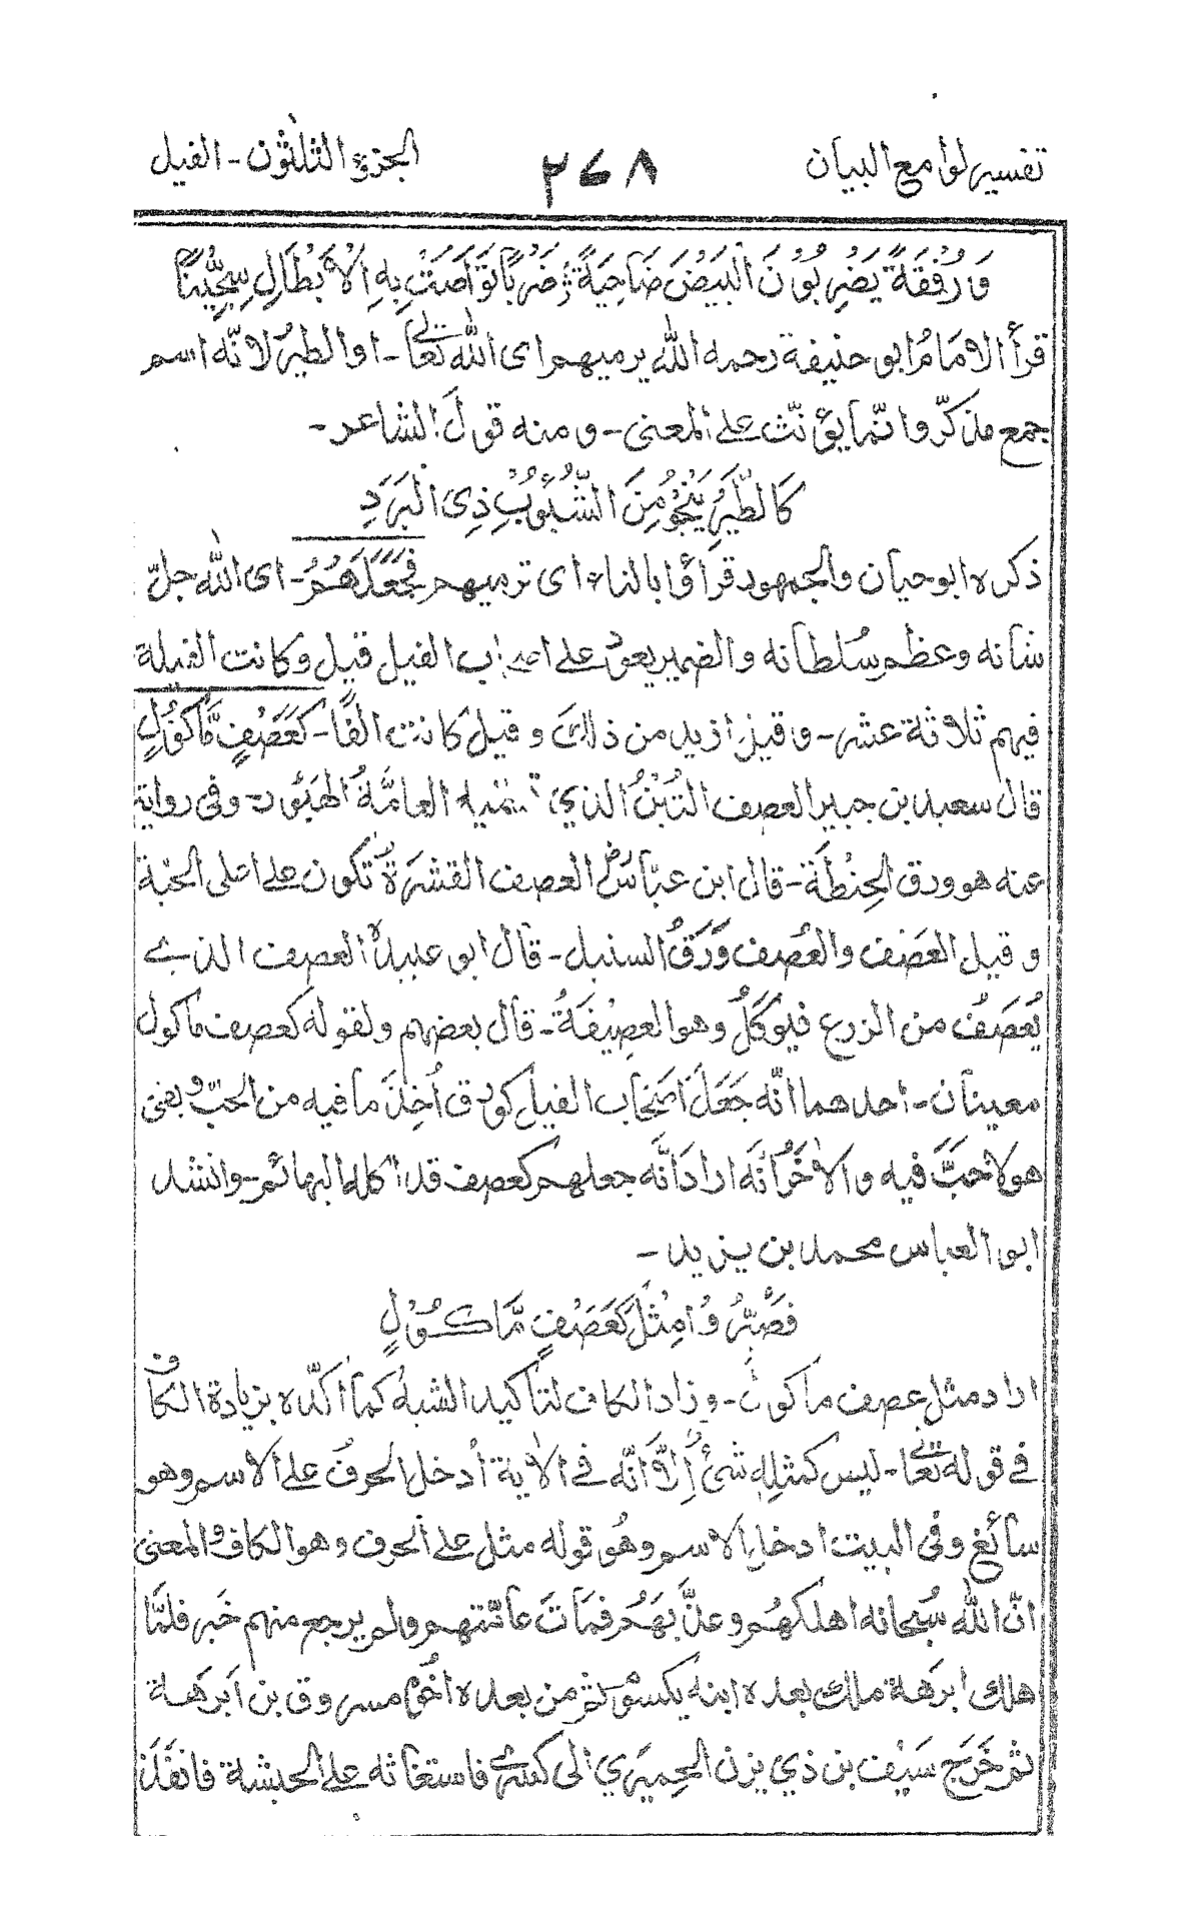 تفسير لوامع البيان ٢٦٨ الجزؤ الثلثون - الفيل
وَرُفْقَةً يَضْرِبُوْنَ الْبَيْضَ ضَاحِيَةً ؛ ضَرْبًا تَوَاصَتْ بِهِ الْاَبْطَالِ سِجِّيْنًا
قرأ الامامُ ابو حنيفة رحمه الله يرميهم اى الله تعالى - او الطيرُ لانّه اسم
جمع مذكّر وانّما يؤنّث على المعنى - ومنه قولَ الشاعر -
كَالطَّيْرِ يَنْجُوْ مِنَ الشُّبُوْبِ ذِى الْبَرَدِ
ذكره ابو حيان والجمهور قرأؤا بالتاء اى ترميهم فَجَعَلَهُمْ - اى الله جلّ
شانه وعظم سُلطانه والضمير يعود على اصحاب الفيل قيل وكانت الفيلة
فيهم ثلاثة عشر - وقيل ازيد من ذلك وقيل كانت الفًا - كَعَصْفٍ مَّاْكُوْلٍ
قال سعيد بن جبير العصف التُبْنُ الذي تسميه العامَّةُ الهَبُوْر - وفى رواية
عنه هو ورق الحِنْطَة - قال ابن عبّاسؓ العصف القشرَةُ تكون على اعلى الحبّة
وقيل العَصْف والعُصف وَرَقُ السنبل - قال ابو عبيدةؒ العصف الذي
يُعصَفُ من الزرع فيؤكَلُ وهو العصِيْفَةُ - قال بعضهم ولقوله كعصف ماكول
معينان - احدهما انّه جَعَلَ اَصْحَابَ الفيل كورق اُخِذَ ما فيه من الحَبّ وبقى
هو لاحَبَّ فيه والاٰخَرُ انّه ارادَ انَّه جعلهم كعصف قد اكله البهائم - وانشد
ابو العباس محمد بن يزيد -
فَصُيِّرُوْا مِثْلَ كَعَصْفٍ مَّاكُوْلٍ
اراد مثل عصف ماكول - وزاد الكاف لتاكيد الشبه كما اكّده بزيادة الكاف
فى قوله تعالى - ليس كمثله شئٌ اِلَّا انّه فى الاٰية ادخل الحرفَ على الاسم وهو
سائغ وفى البيت ادخل الاسم وهُو قوله مثل على الحرف وهو الكاف والمعنى
انّ الله سُبحانه اهلكهُم وعذّ بَهُم فمَاتَ عامّتهم ولم يرجع منهم خَبر فلمّا
هلك ابرَهة ملك بعده ابنه يكسوم ثم من بعده اخوه مسروق بن اَبرَهة
ثم خَرَجَ سَيْف بن ذي يزن الحِميَري الى كسرٰى فاستغاثه على الحبشة فانفَذ